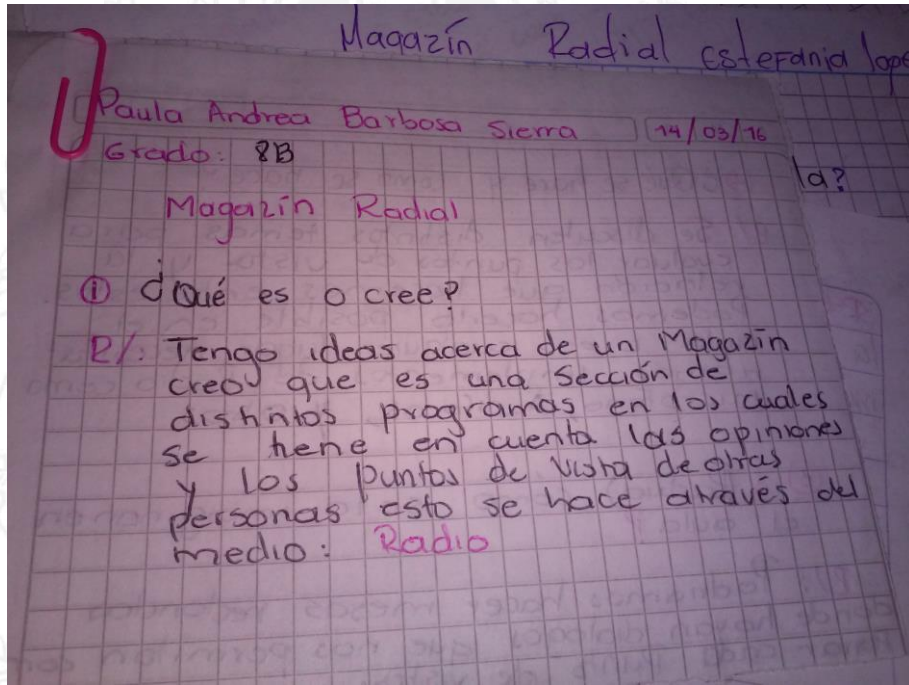 Magazín Radial Estefania lope
Paula Andrea Barbosa Sierra 14/03/16
Grado: 8B
la?
Magazín Radial
① ¿Qué es o cree?
R/: Tengo ideas acerca de un Magazín
creo que es una sección de
distintos programas en los cuales
se tiene en cuenta las opiniones
y los puntos de vista de otras
personas esto se hace através del
medio: Radio